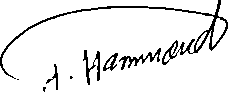 A. Hammond